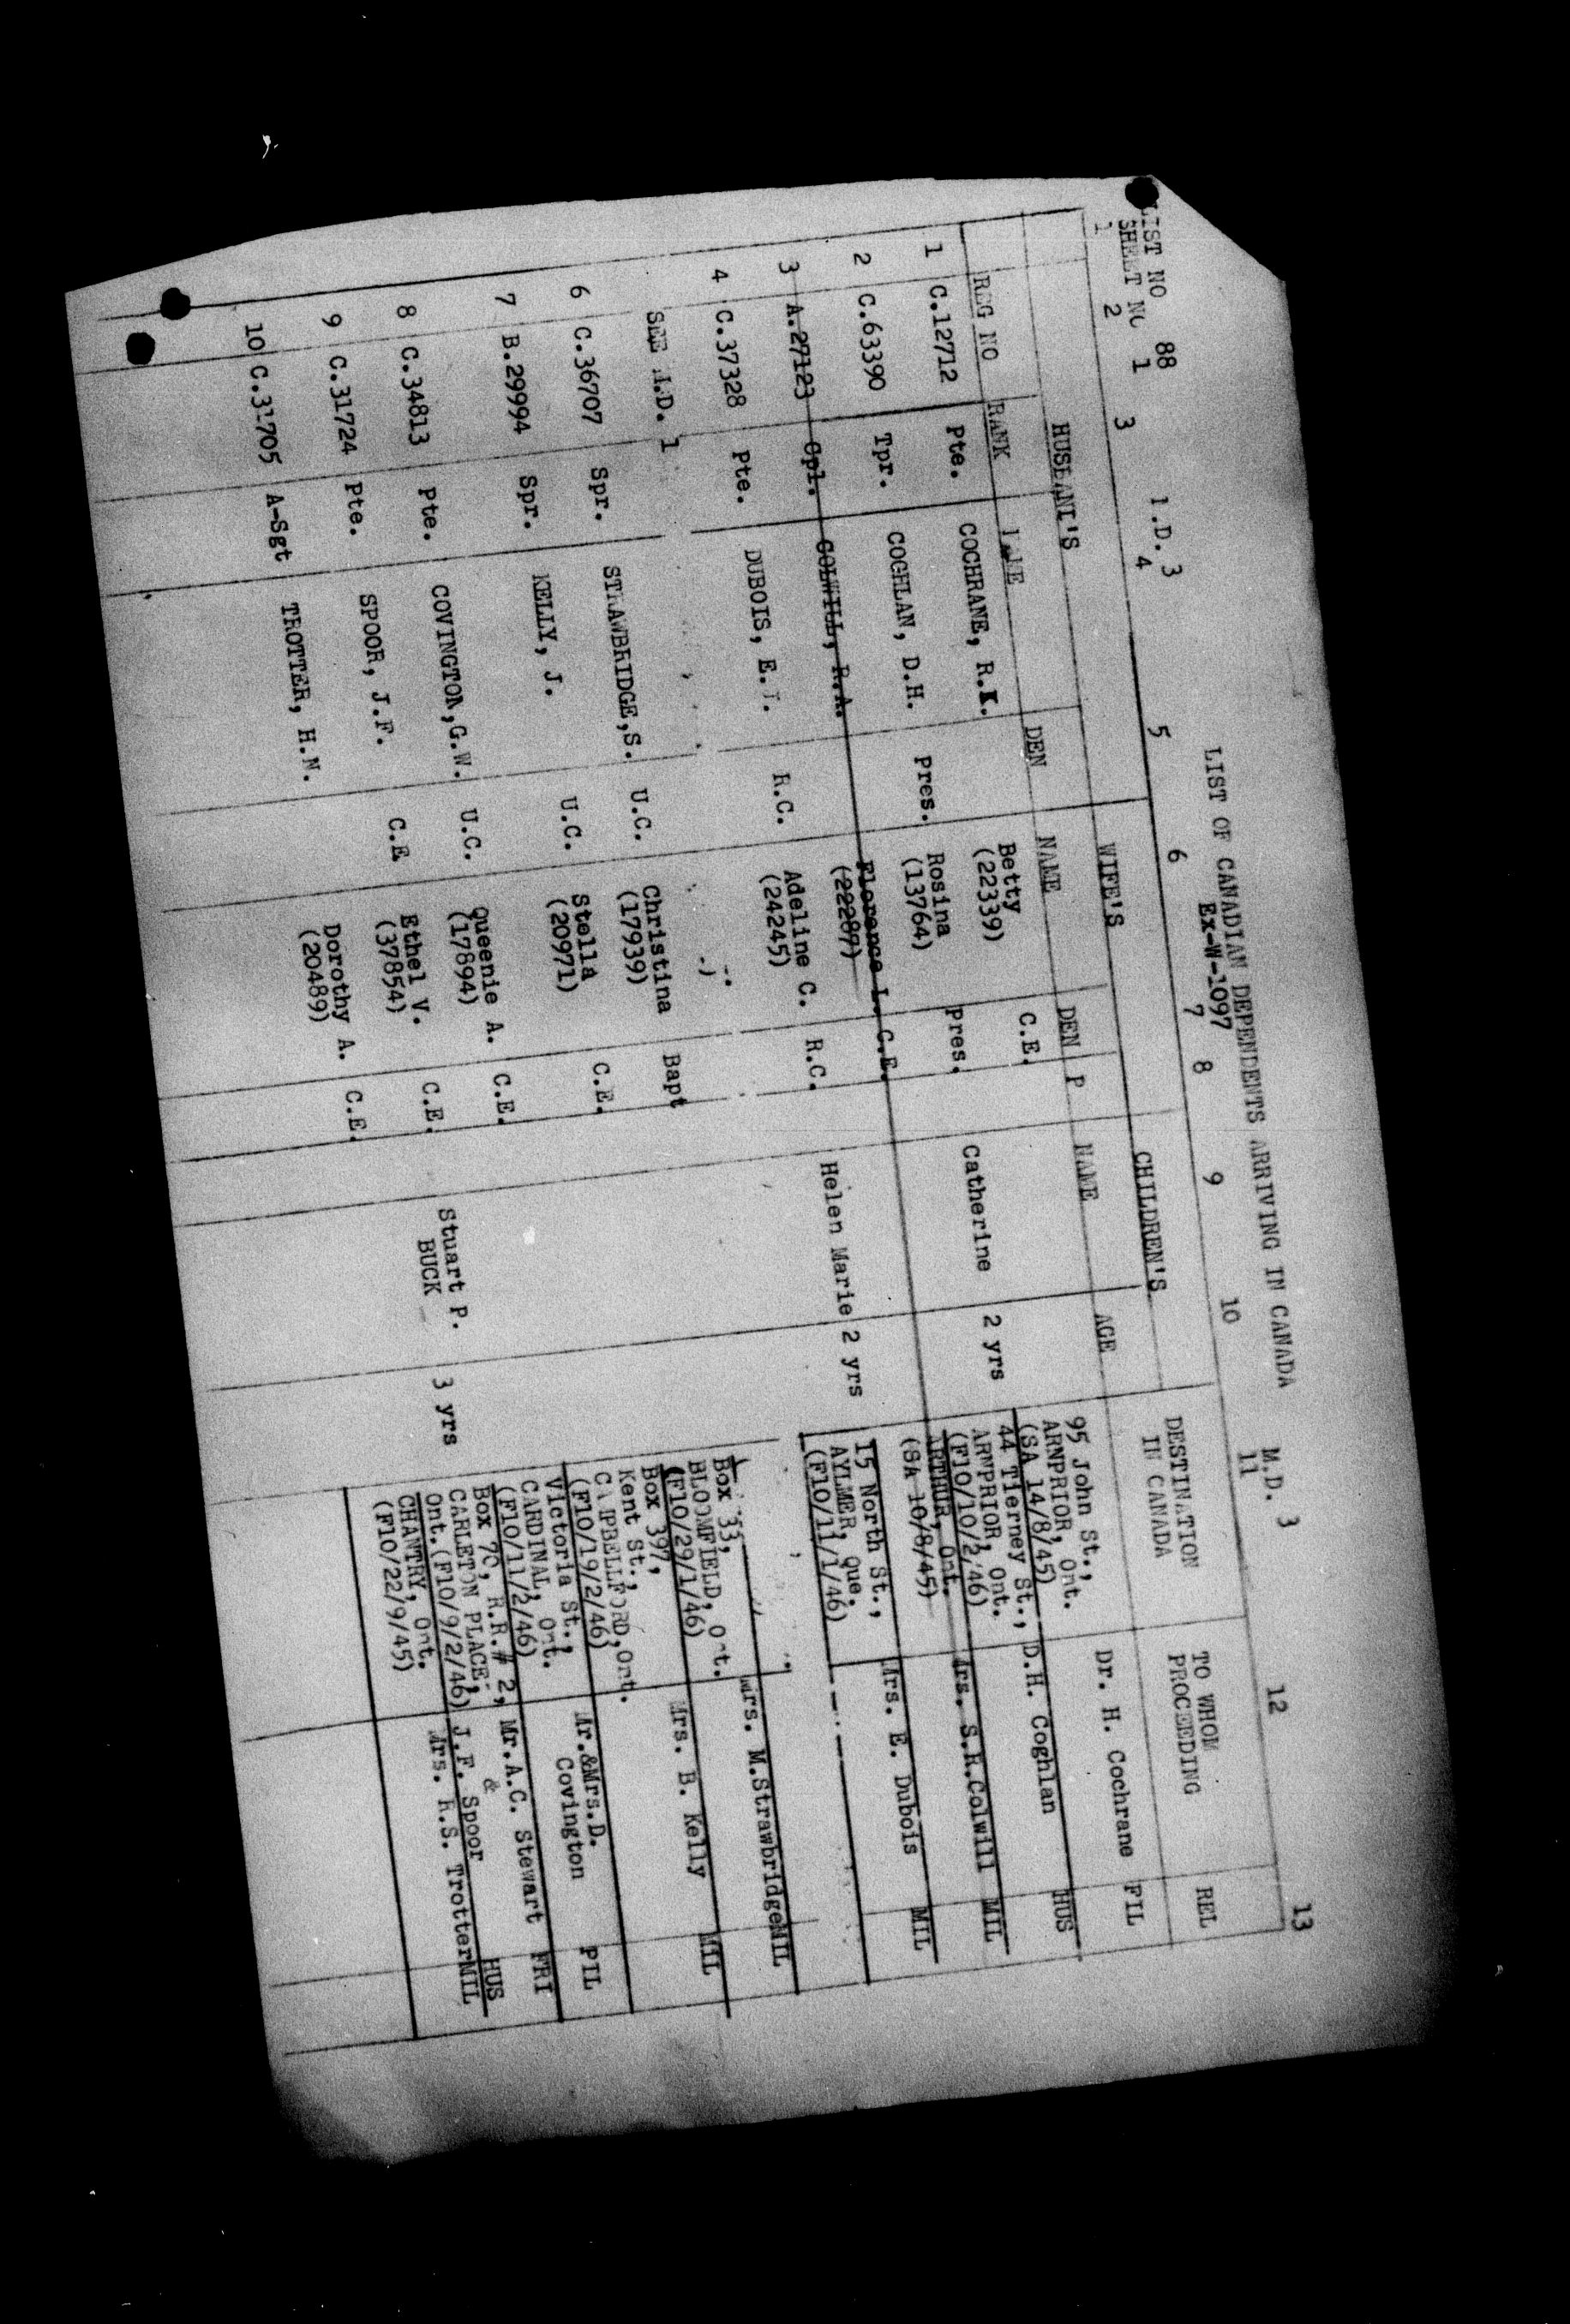 LIST NO 88
SHEET NO 1
M.D. 3
LIST OF CANADIAN DEPENDENTS ARRIVING IN CANADA
Ex-W-1097
M.D. 3
1 2 3 4 5 6 7 8 9 10 11 12 13
HUSBAND'S WIFE'S CHILDREN'S DESTINATION IN CANADA TO WHOM PROCEEDING REL
REG NO RANK NAME DEN NAME DEN P NAME AGE
1 C.12712 Pte. COCHRANE, R.K. Betty C.E. 95 John St., Dr. H. Cochrane FIL
(22339) ARNPRIOR, Ont.
(SA 14/8/45)
2 C.63390 Tpr. COGHLAN, D.H. Pres. Rosina Pres. Catherine 2 yrs 44 Tierney St., D.H. Coghlan HUS
(13764) ARNPRIOR, Ont.
(F10/10/2/46)
3 A.27123 Cpl. COLWILL, R.A. Florence L. C.E. ARTHUR, Ont. Mrs. S.R.Colwill MIL
(22287) (SA 10/8/45)
4 C.37328 Pte. DUBOIS, E.J. R.C. Adeline C. R.C. Helen Marie 2 yrs 15 North St., Mrs. E. Dubois MIL
(24245) AYLMER, Que.
(F10/11/1/46)
SEE M.D. 1
6 C.36707 Spr. STRAWBRIDGE,S. U.C. Christina Bapt Box 33, Mrs. M.Strawbridge MIL
(17939) BLOOMFIELD, Ont.
(F10/29/1/46)
7 B.29994 Spr. KELLY, J. U.C. Stella C.E. Box 397, Mrs. B. Kelly MIL
(20971) Kent St.,
CAMPBELLFORD,Ont.
(F10/19/2/46)
8 C.34813 Pte. COVINGTON,G.W. U.C. Queenie A. C.E. Stuart P. 3 yrs Victoria St., Mr.&Mrs.D. PIL
(17894) BUCK CARDINAL, Ont. Covington
(F10/11/2/46)
9 C.31724 Pte. SPOOR, J.F. C.E Ethel V. C.E. Box 70, R.R.# 2, Mr.A.C. Stewart FRI
(37854) CARLETON PLACE, &
Ont.(F10/9/2/46) J.F. Spoor HUS
10 C.31705 A-Sgt TROTTER, H.N. Dorothy A. C.E. CHANTRY, Ont. Mrs. R.S. Trotter MIL
(20489) (F10/22/9/45)